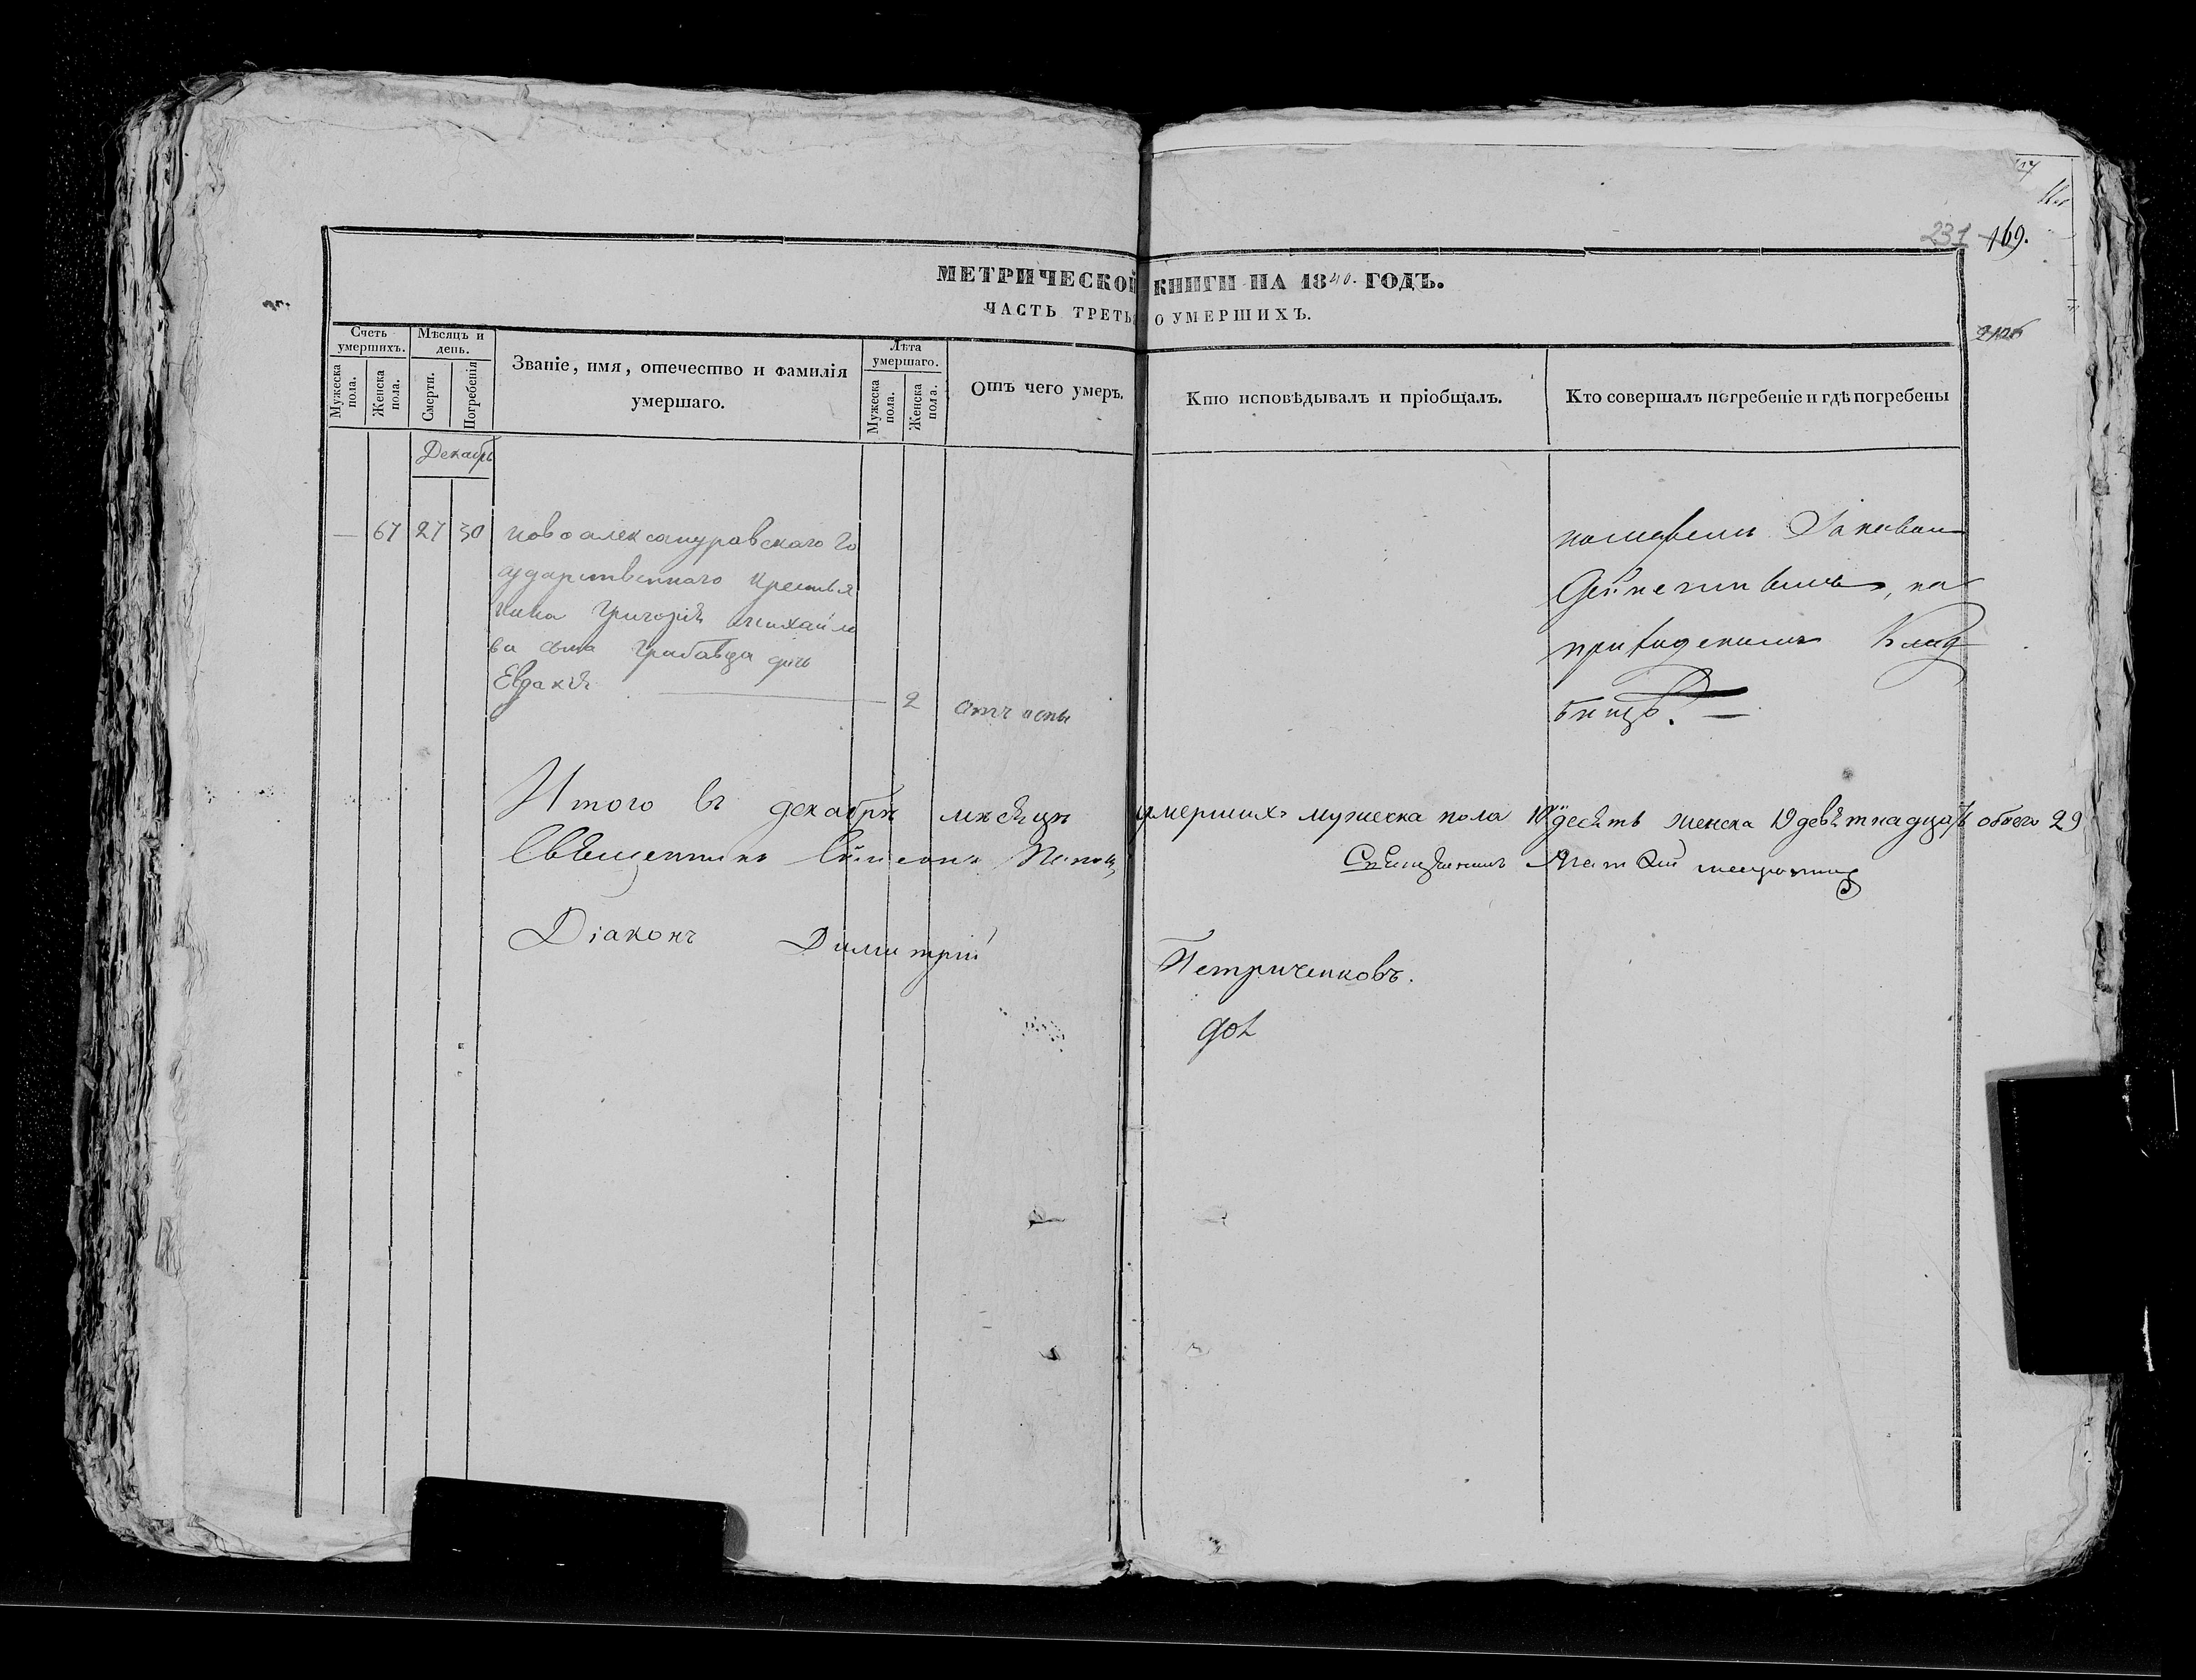 231 169.
МЕТРИЧЕСКОЙ КНИГИ НА 1840. ГОДЪ.
ЧАСТЬ ТРЕТЬЯ О УМЕРШИХЪ.
Счетъ умершихъ.
Мѣсяцъ и день.
Званіе, имя, отечество и фамилія умершаго.
Лѣта умершаго.
Отъ чего умеръ.
Кто исповѣдывалъ и пріобщалъ.
Кто совершалъ погребеніе и гдѣ погребены
Мужеска пола.
Женска пола.
Смерти.
Погребенія
Мужеска пола.
Женска пола.
Декабрь
— 67 27 30 новоалександровскаго го
сударственнаго крестья
нина Григорія михайло
ва сына Грабовца дочь
Евдакія 2 отъ оспы
на
приходскомъ Клад
бищѣ.
Итого въ декабрѣ мѣсяцѣ умершихъ мужеска пола 10 десять женска 19 девѣтнадцать обоего 29
Священникъ Симеонъ Поповъ
Священникъ
Діаконъ Димитрій Петриченковъ.